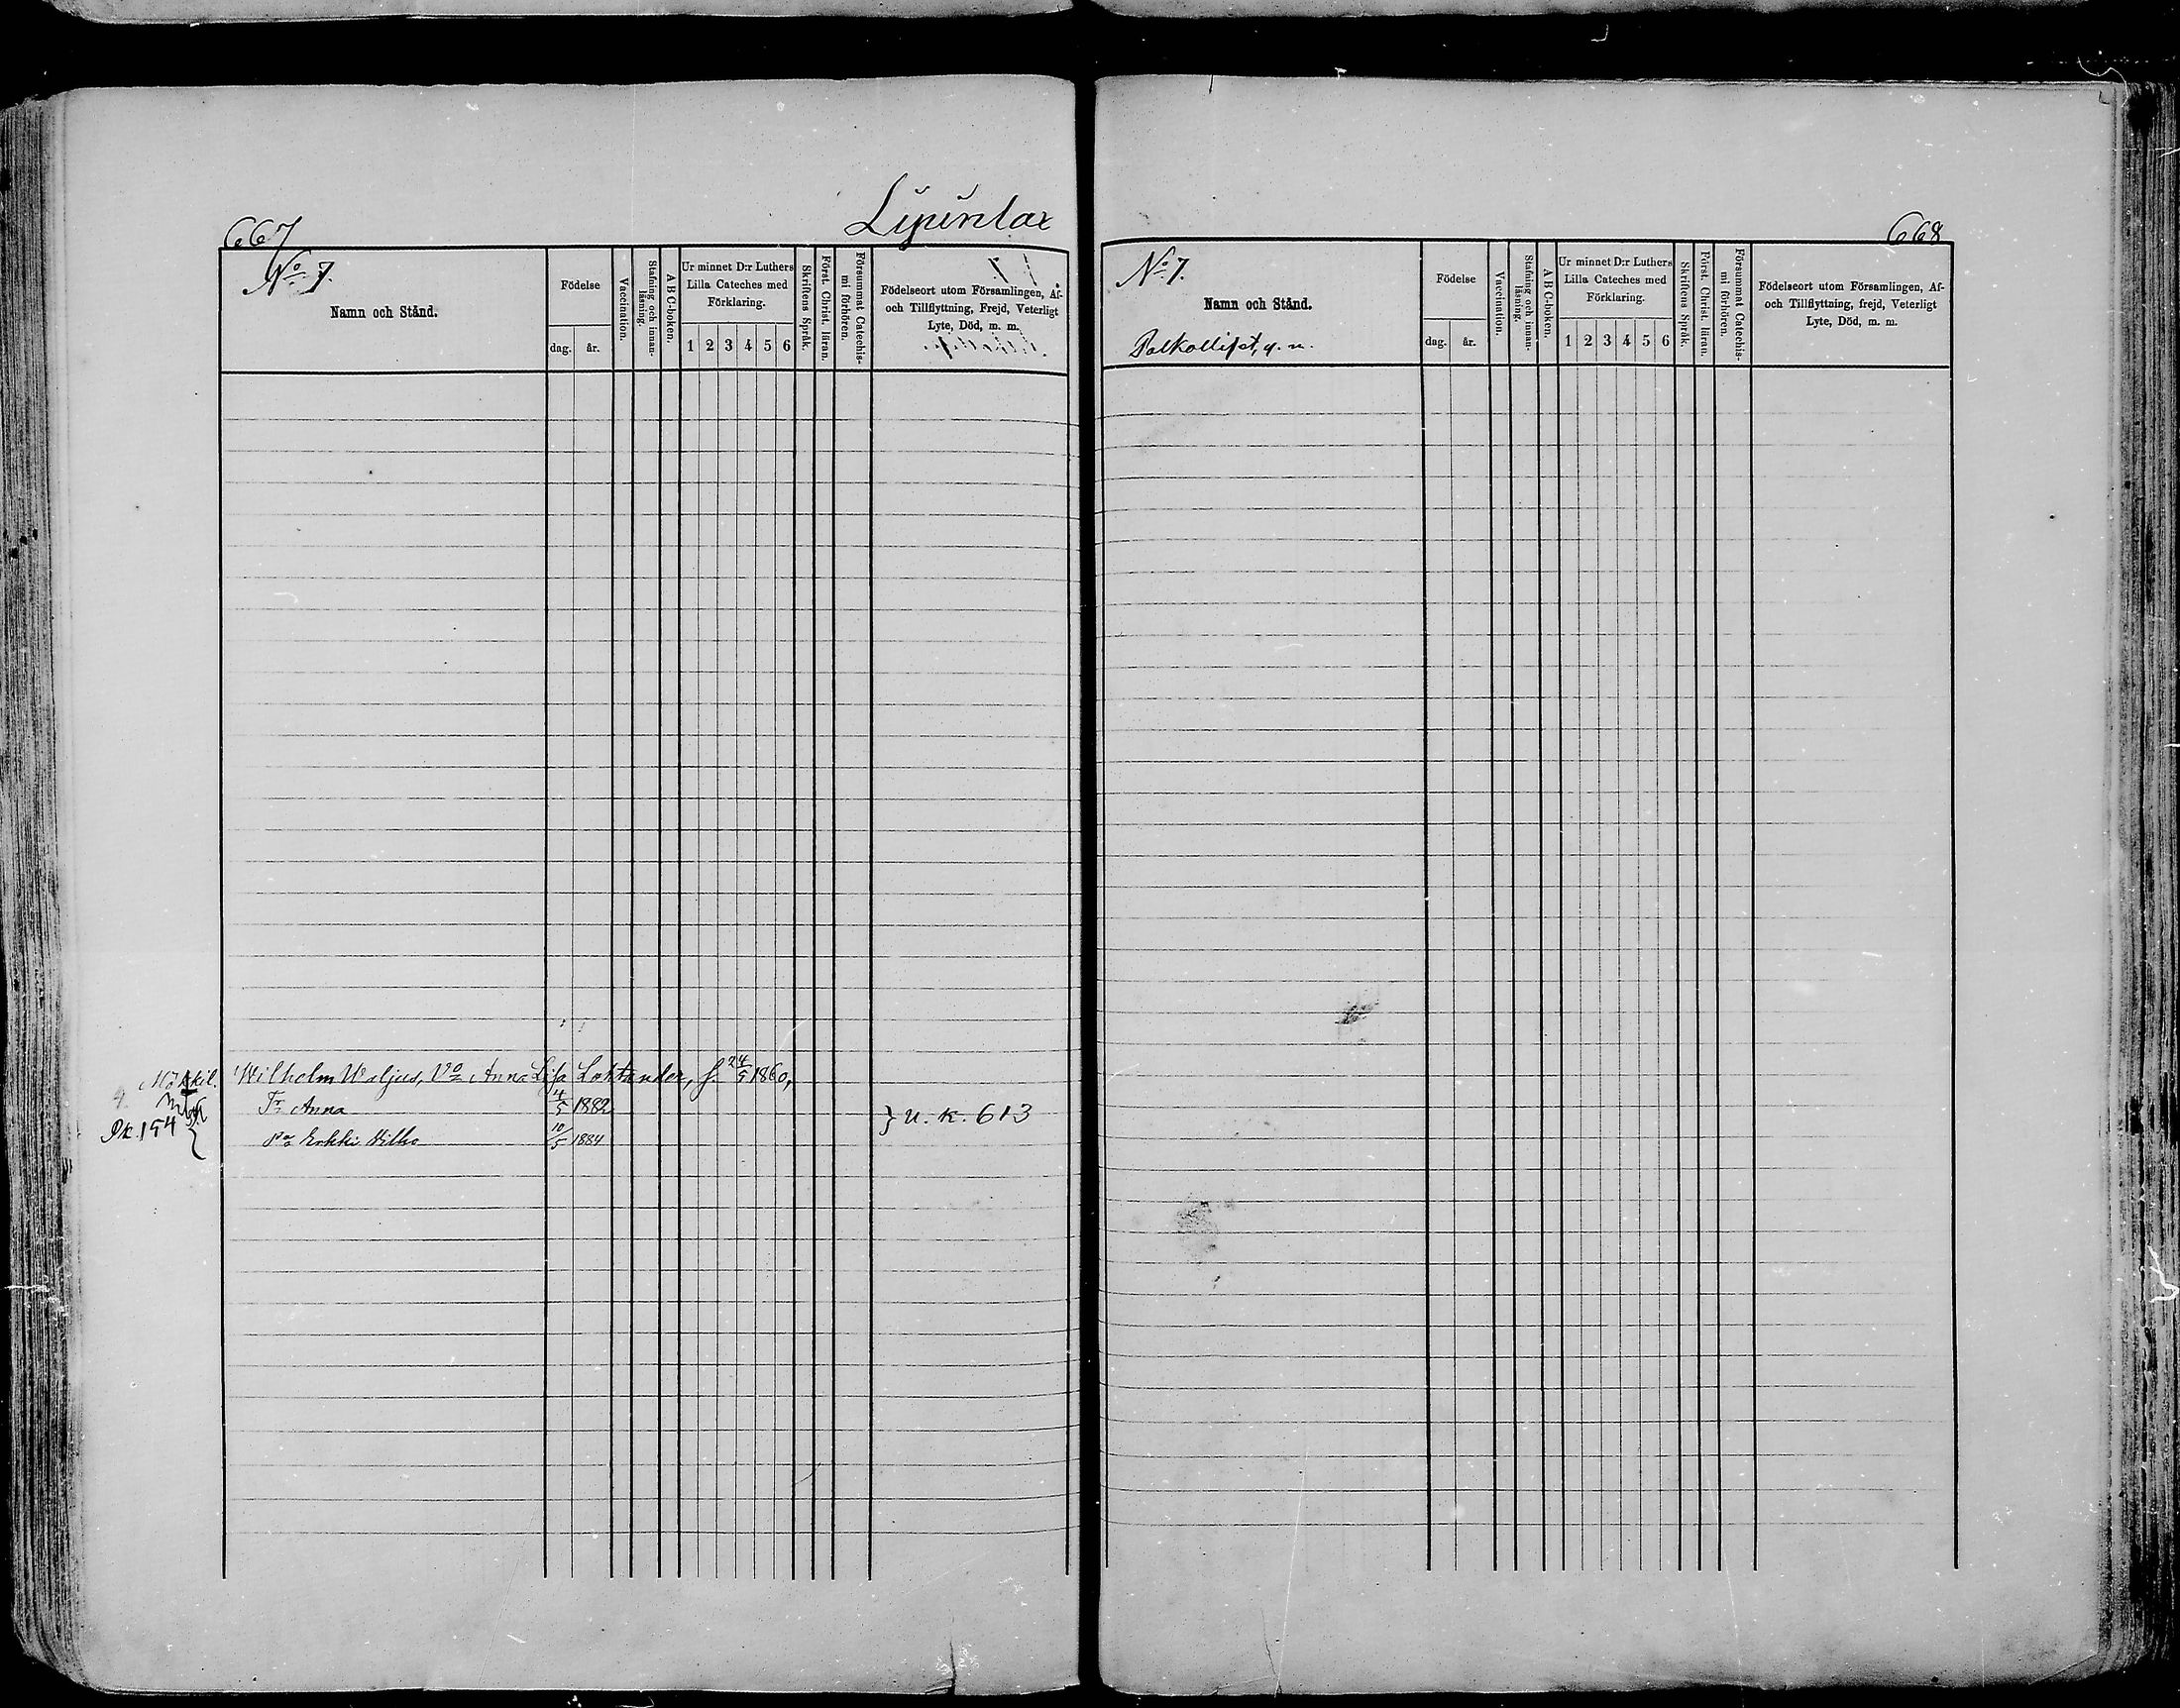 667
Lipintax
No 7.
Namn och Stånd.
Födelse
dag.
år.
Vaccination.
Stafning och innan-
läsning.
A B C-boken.
Ur minnet D:r Luthers
Lilla Cateches med
Förklaring.
1 2 3 4 5 6
Skriftens Språk.
Först. Christ. läran.
Försummat Catechis-
mi förhören.
Födelseort utom Församlingen, Af-
och Tillflyttning, Frejd, Veterligt
Lyte, Död, m. m.
Wilhelm Waljus, Va Anna Lisa Lohtander, f. 24/5 1860,
Tr Anna 4/5 1882
Pa Erkki Vilho 10/5 1884
} u. k. 613
Pk. 194
668
No 7.
Namn och Stånd.
Födelse
dag.
år.
Vaccination.
Stafning och innan-
läsning.
A B C-boken.
Ur minnet D:r Luthers
Lilla Cateches med
Förklaring.
1 2 3 4 5 6
Skriftens Språk.
Först. Christ. läran.
Försummat Catechis-
mi förhören.
Födelseort utom Församlingen, Af-
och Tillflyttning, frejd, Veterligt
Lyte, Död, m. m.